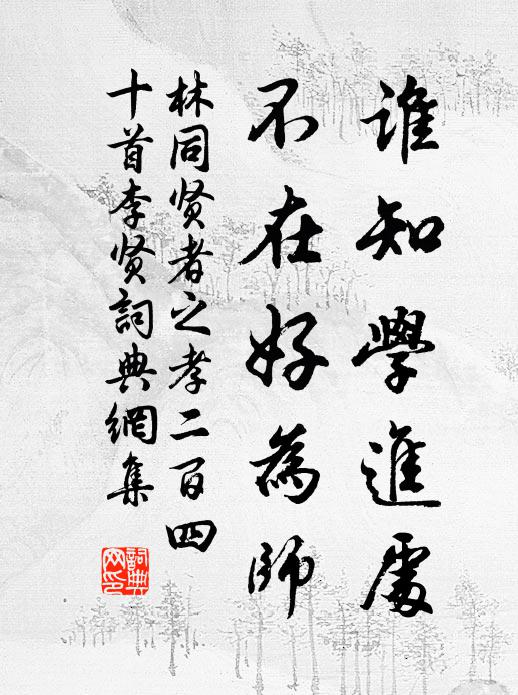 誰知學進處
不在好為師
林同贤者之孝二百四
十首李贤詞典網集
詞典
网印